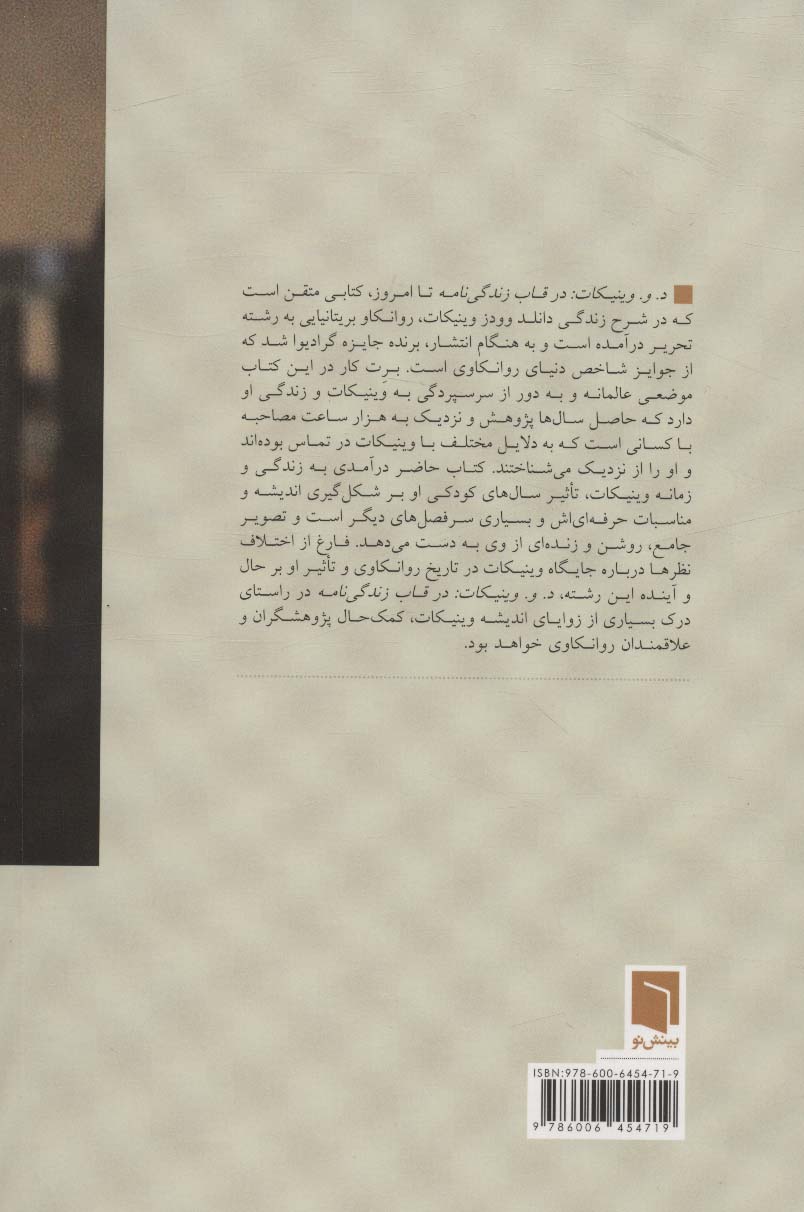 د. و. وینیکات: در قاب زندگی‌نامه تا امروز، کتابی متقن است
که در شرح زندگی دانلد وودز وینیکات، روانکاو بریتانیایی به رشته
تحریر درآمده است و به هنگام انتشار، برنده جایزه گرادیوا شد که
از جوایز شاخص دنیای روانکاوی است. برِت کار در این کتاب
موضعی عالمانه و به دور از سرسپردگی به وینیکات و زندگی او
دارد که حاصل سال‌ها پژوهش و نزدیک به هزار ساعت مصاحبه
با کسانی است که به دلایل مختلف با وینیکات در تماس بوده‌اند
و او را از نزدیک می‌شناختند. کتاب حاضر درآمدی به زندگی و
زمانه وینیکات، تأثیر سال‌های کودکی او بر شکل‌گیری اندیشه و
مناسبات حرفه‌ای‌اش و بسیاری سرفصل‌های دیگر است و تصویر
جامع، روشن و زنده‌ای از وی به دست می‌دهد. فارغ از اختلاف
نظرها درباره جایگاه وینیکات در تاریخ روانکاوی و تأثیر او بر حال
و آینده این رشته، د. و. وینیکات: در قاب زندگی‌نامه در راستای
درک بسیاری از زوایای اندیشه وینیکات، کمک‌حال پژوهشگران و
علاقمندان روانکاوی خواهد بود.
بینش‌نو
ISBN:978-600-6454-71-9
9 786006 454719